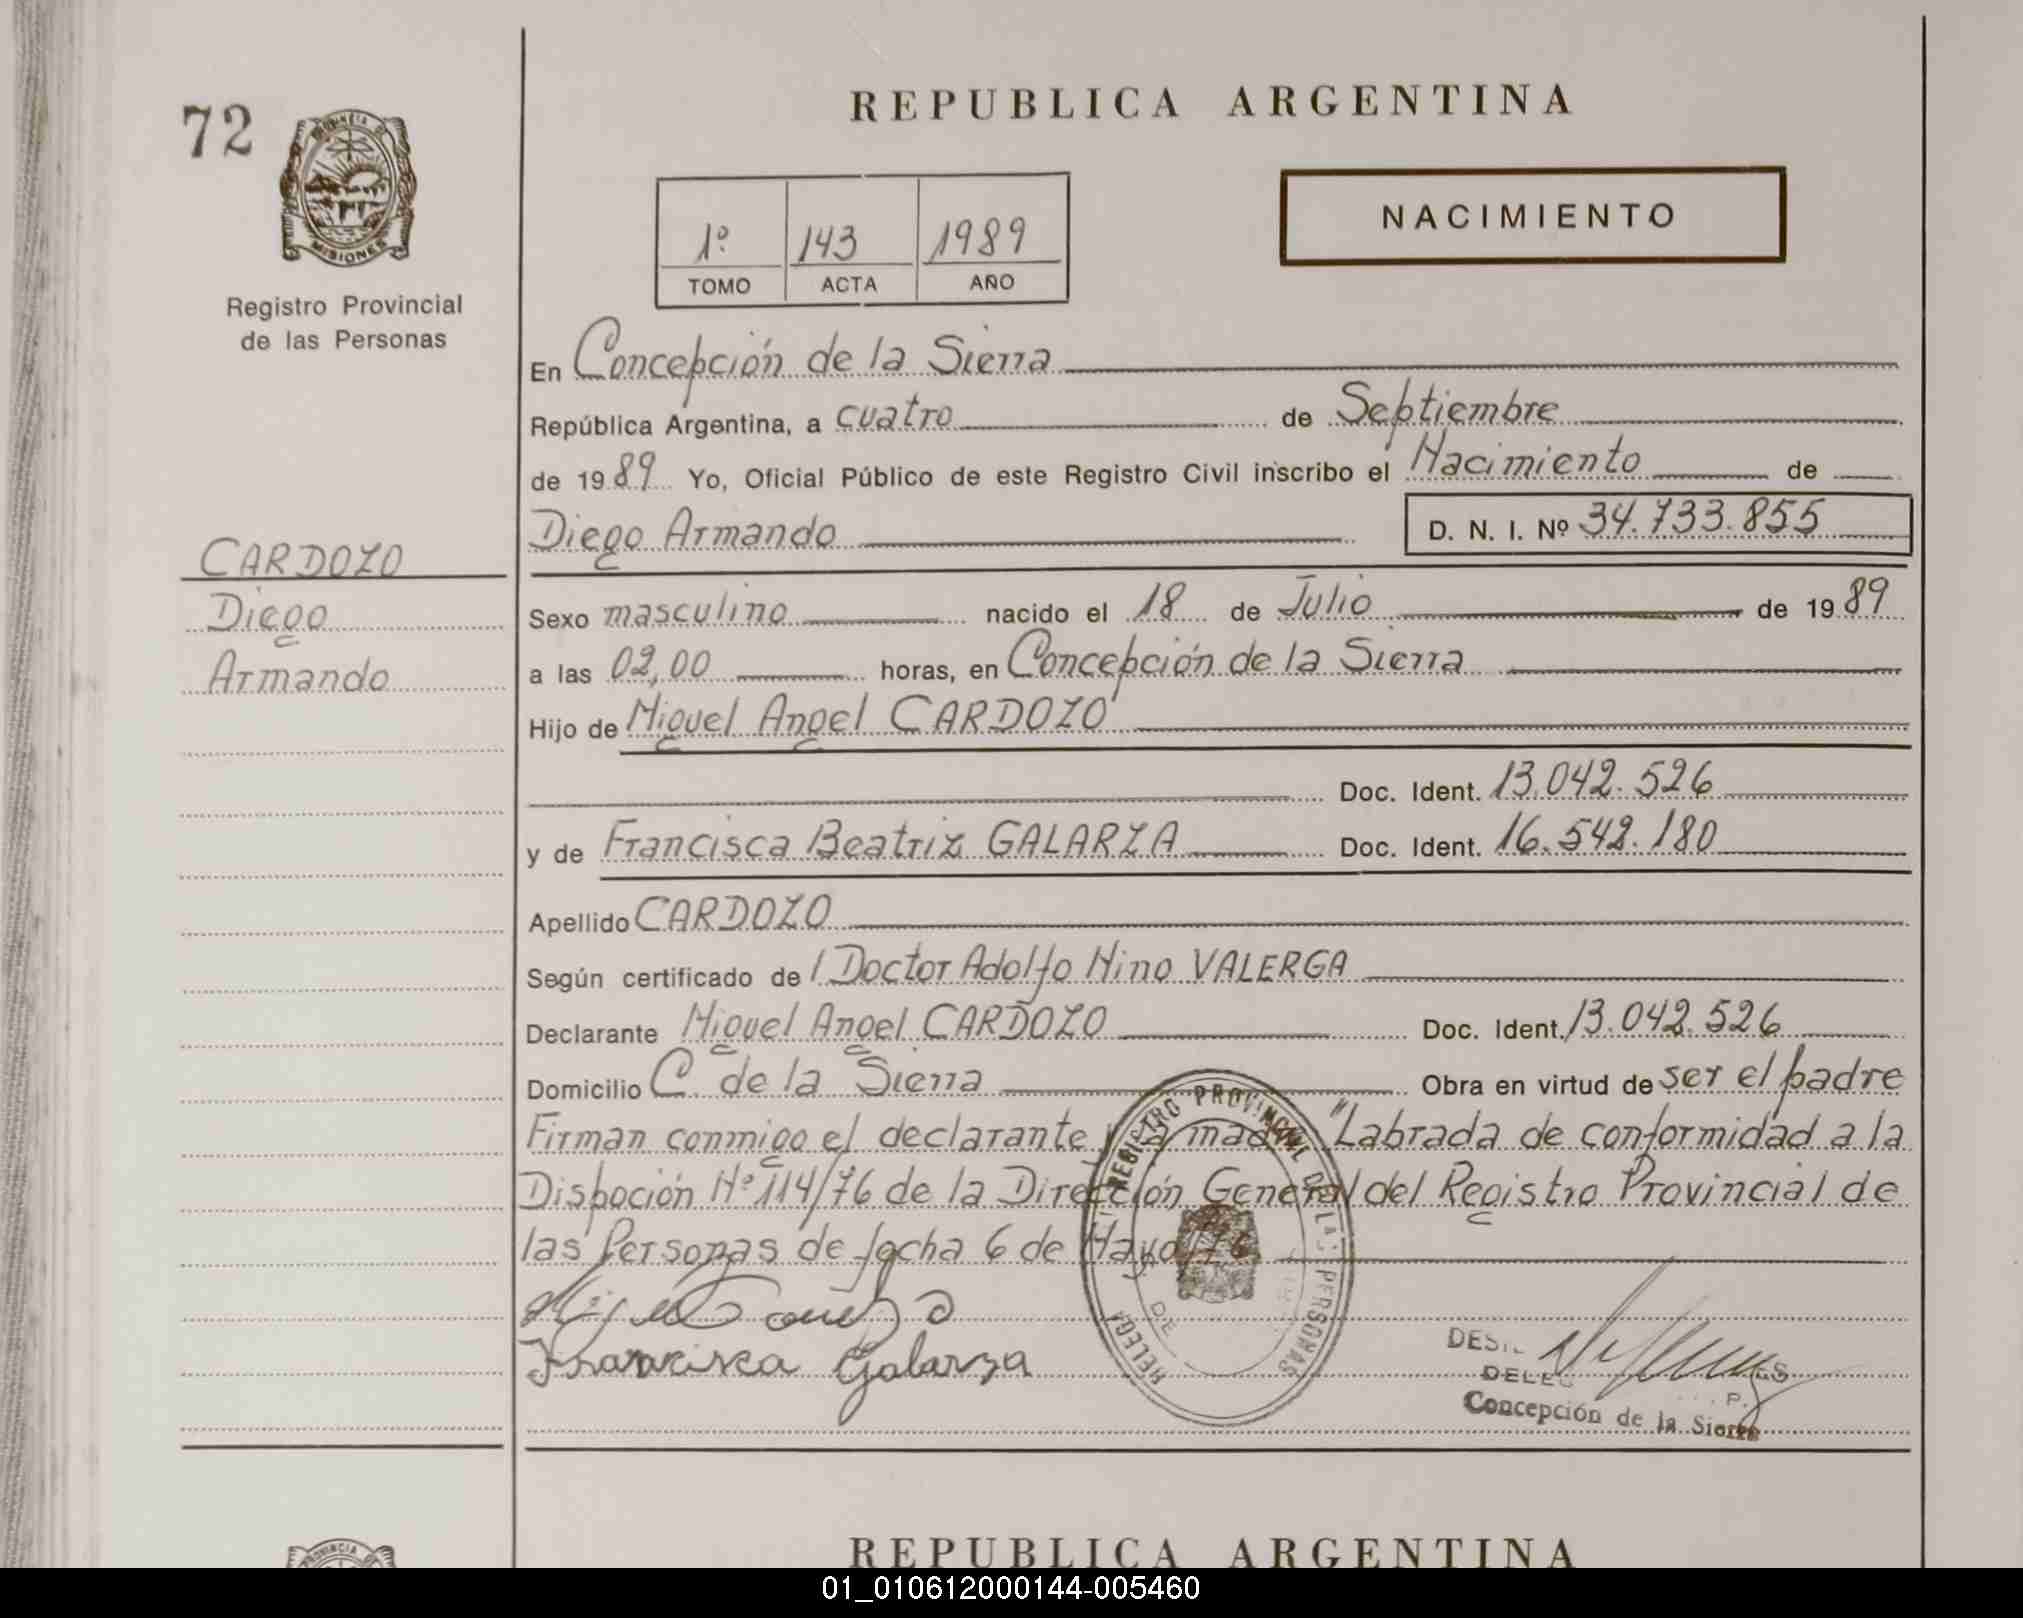 72
PROVINCIA DE
MISIONES
Registro Provincial
de las Personas
CARDOZO
Diego
Armando
REPUBLICA ARGENTINA
1º 143 1989
TOMO ACTA AÑO
NACIMIENTO
En Concepción de la Sierra
República Argentina, a cuatro de Septiembre
de 1989 Yo, Oficial Público de este Registro Civil inscribo el Nacimiento de
Diego Armando D. N. I. Nº 34.733.855
Sexo masculino nacido el 18 de Julio de 1989
a las 02,00 horas, en Concepción de la Sierra
Hijo de Miguel Angel CARDOZO
Doc. Ident. 13.042.526
y de Francisca Beatriz GALARZA Doc. Ident. 16.542.180
Apellido CARDOZO
Según certificado de l Doctor Adolfo Nino VALERGA
Declarante Miguel Angel CARDOZO Doc. Ident. 13.042.526
Domicilio C. de la Sierra Obra en virtud de ser el padre
Firman conmigo el declarante y la madre "Labrada de conformidad a la
Dispoción Nº 114/76 de la Dirección General del Registro Provincial de
las Personas de fecha 6 de Mayo/76
REGISTRO PROVINCIAL DE LAS PERSONAS
Francisca Galarza
Concepción de la Sierra
PROVINCIA DE
REPUBLICA ARGENTINA
01_010612000144-005460